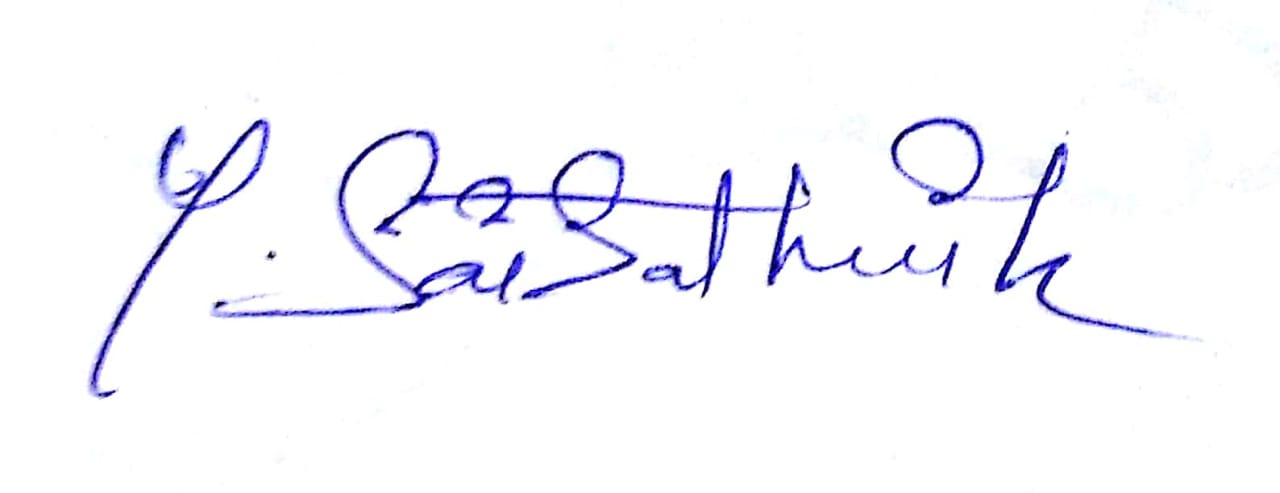 Y. Sai Sathwik